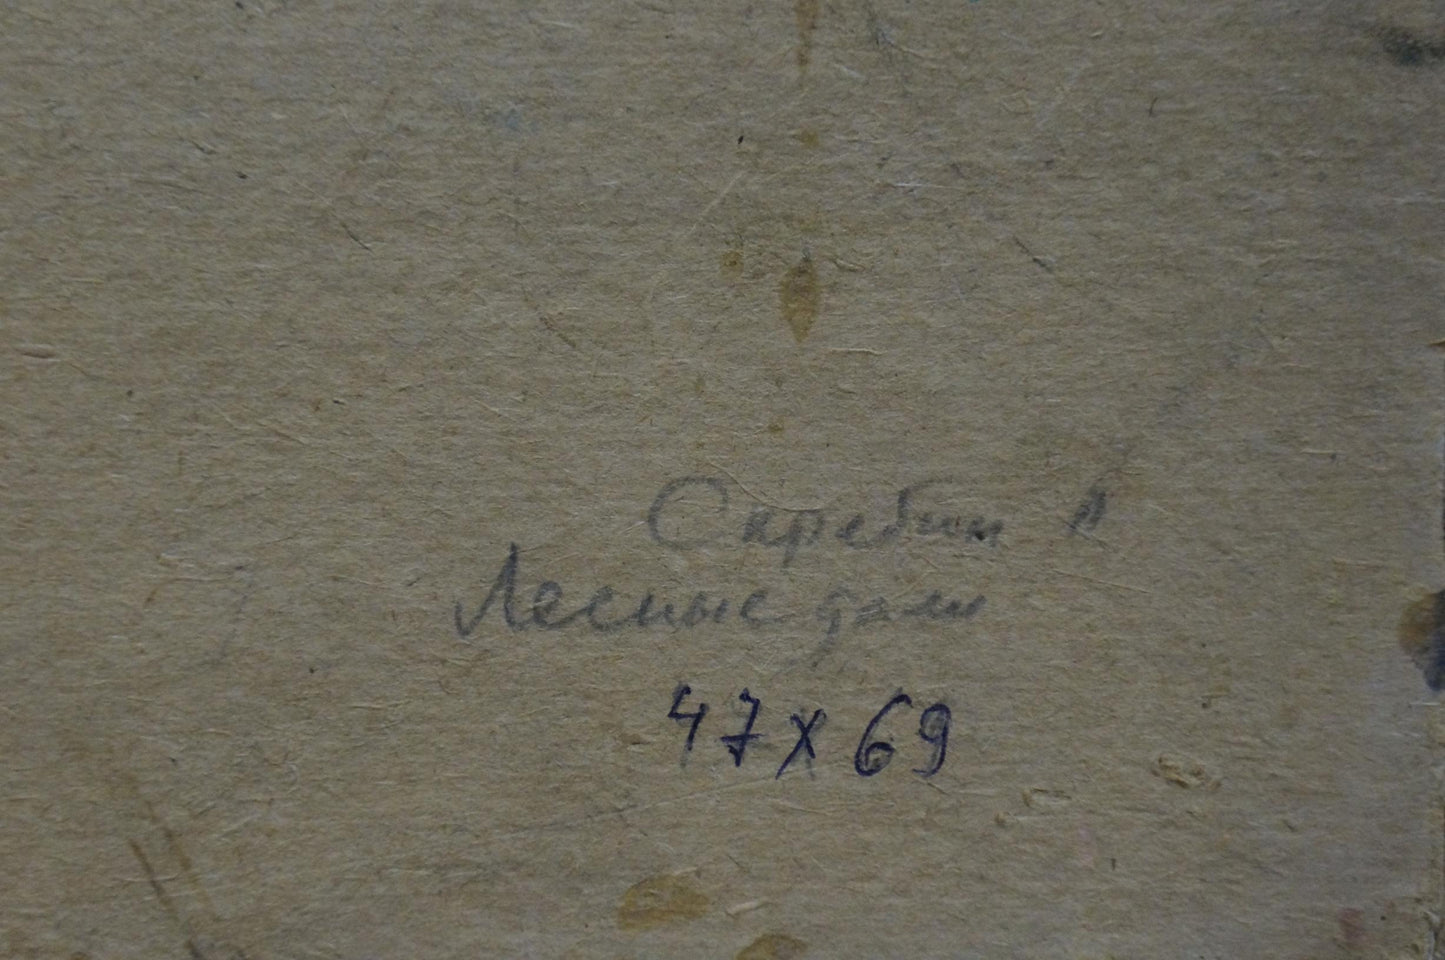 Скребин А
Лесные дали
47 х 69